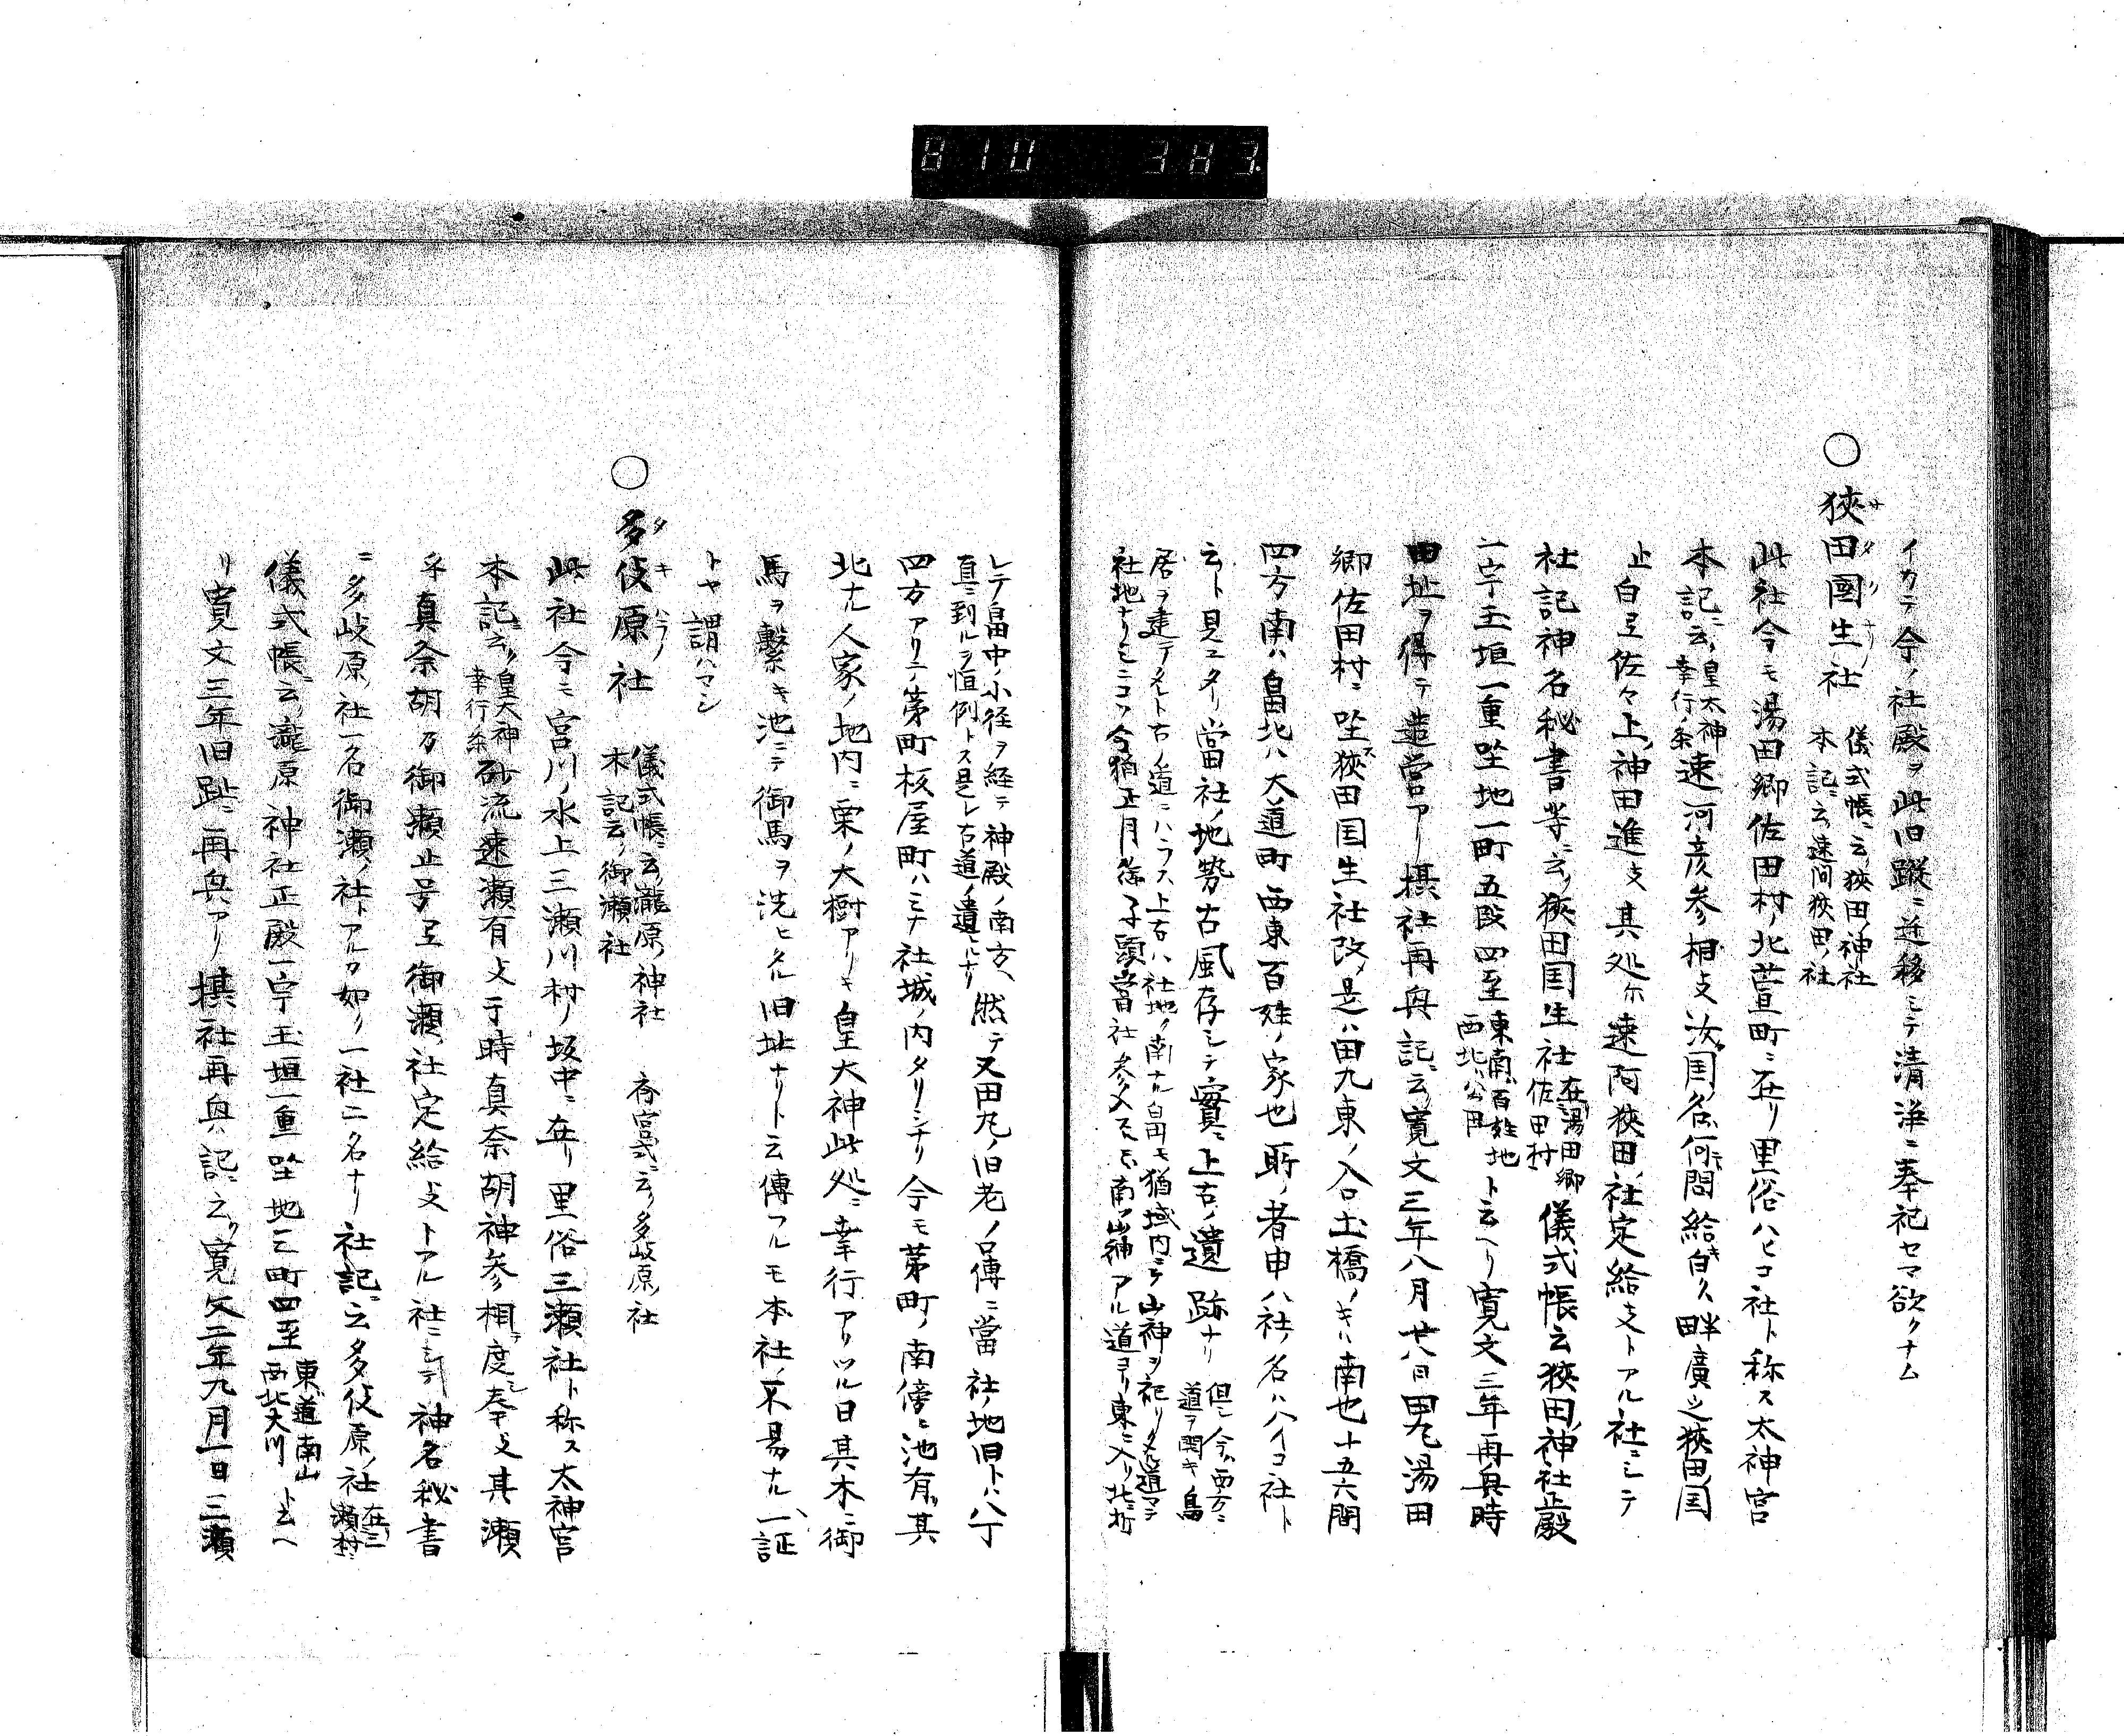 810 383
イカテ今ノ社殿ヲ此旧蹤ニ遷移シテ清浄ニ奉祀セマ欲クナム
○狭田國生社 儀式帳ニ云狭田ノ神社
本記ニ云速河狭田ノ社
此社今モ湯田郷佐田村ノ北萱町ニ在リ里俗ハヒコ社ト称ス太神宮
本記ニ云ク皇太神
幸行ノ条速河彦参相支汝国名何問給白久畔廣之狭田国
止白弖佐々上神田進支其処尓速河狭田社定給支トアル社ニシテ
社記神名秘書等ニ云ク狭田国生社在湯田郷
佐田村儀式帳云狭田神社正殿
一宇玉垣一重坐地一町五段四至東南百姓地
西北公田ト云ヘリ寛文三年再興時
田址ヲ得テ造営アリ摂社再興記ニ云寛文三年八月廿八日田丸湯田
郷佐田村ニ坐狭田国生社改メ是ハ田丸東ノ入口土橋ノキハ南也十五六間
四方南ハ畠北ハ大道町西東百姓ノ家也所ノ者申ハ社ノ名ハハイコ社ト
云ト見エタリ當社ノ地勢古風存シテ實ニ上古ノ遺跡ナリ但シ今西方ニ
道ヲ開キ鳥
居ヲ建テタレト古ノ道ニハアラス上古ハ社地ノ南ナル白田モ猶域内ニテ山神ヲ祀リタル道マテ
社地ナリシニコソ今猶正月祭子頭當社参入スルモ南ノ山神アル道ヨリ東ニ入リ北ニ折
レテ畠中ノ小径ヲ経テ神殿ノ南方ヘ
真ニ到ルヲ恒例トス是レ古道ノ遺レルナリ然テ又田丸ノ旧老ノ口傳ニ當社ノ地旧トハ八丁
四方アリテ茅町板屋町ハミナ社域ノ内タリシナリ今モ茅町ノ南傍ニ池有リ其
北ナル人家ノ地内ニ栗ノ大樹アリキ皇大神此処ニ幸行アリツル日其木ニ御
馬ヲ繋キ池ニテ御馬ヲ洗ヒタル旧址ナリト云傳フルモ本社ノ不易ナル一証
トヤ謂ハマシ
○多伎原社 儀式帳ニ云瀧原ノ神社 斎宮式ニ云ク多岐原ノ社
本記ニ云ク御瀬社
此社今モ宮川ノ水上三瀬川村ノ坂中ニ在リ里俗三瀬社ト称ス太神宮
本記ニ云ク皇大神
幸行条砂流速瀬有支于時真奈胡神参相度奉支其瀬
乎真奈胡乃御瀬止号弖御瀬社定給支トアル社ニシテ神名秘書
ニ多岐原ノ社一名御瀬ノ社トアルカ如ク一社二名ナリ社記ニ云多伎原ノ社在三
瀬村
儀式帳ニ云ク瀧原神社正殿一宇玉垣一重坐地二町四至東道南山
西北大川ト云ヘ
リ寛文三年旧趾ニ再興アリ摂社再興記ニ云ク寛文二年九月一日三瀬